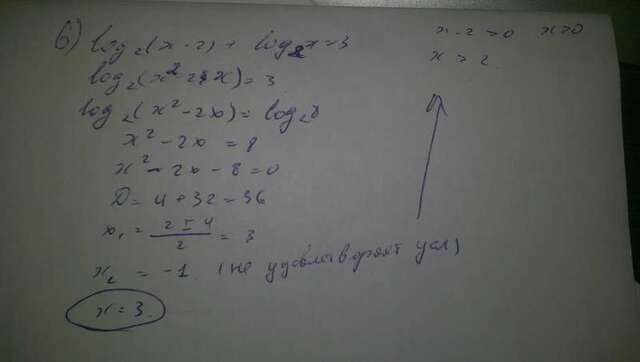 б) log₂(x-2) + log₂x=3
x-2>0 x>0
x>2
log₂(x²-2x)=3
log₂(x²-2x)=log₂8
x²-2x=8
x²-2x-8=0
D=4+32=36
x₁=(2±4)/2=3
x₂=-1 (не удовлетворяет усл)
x=3.